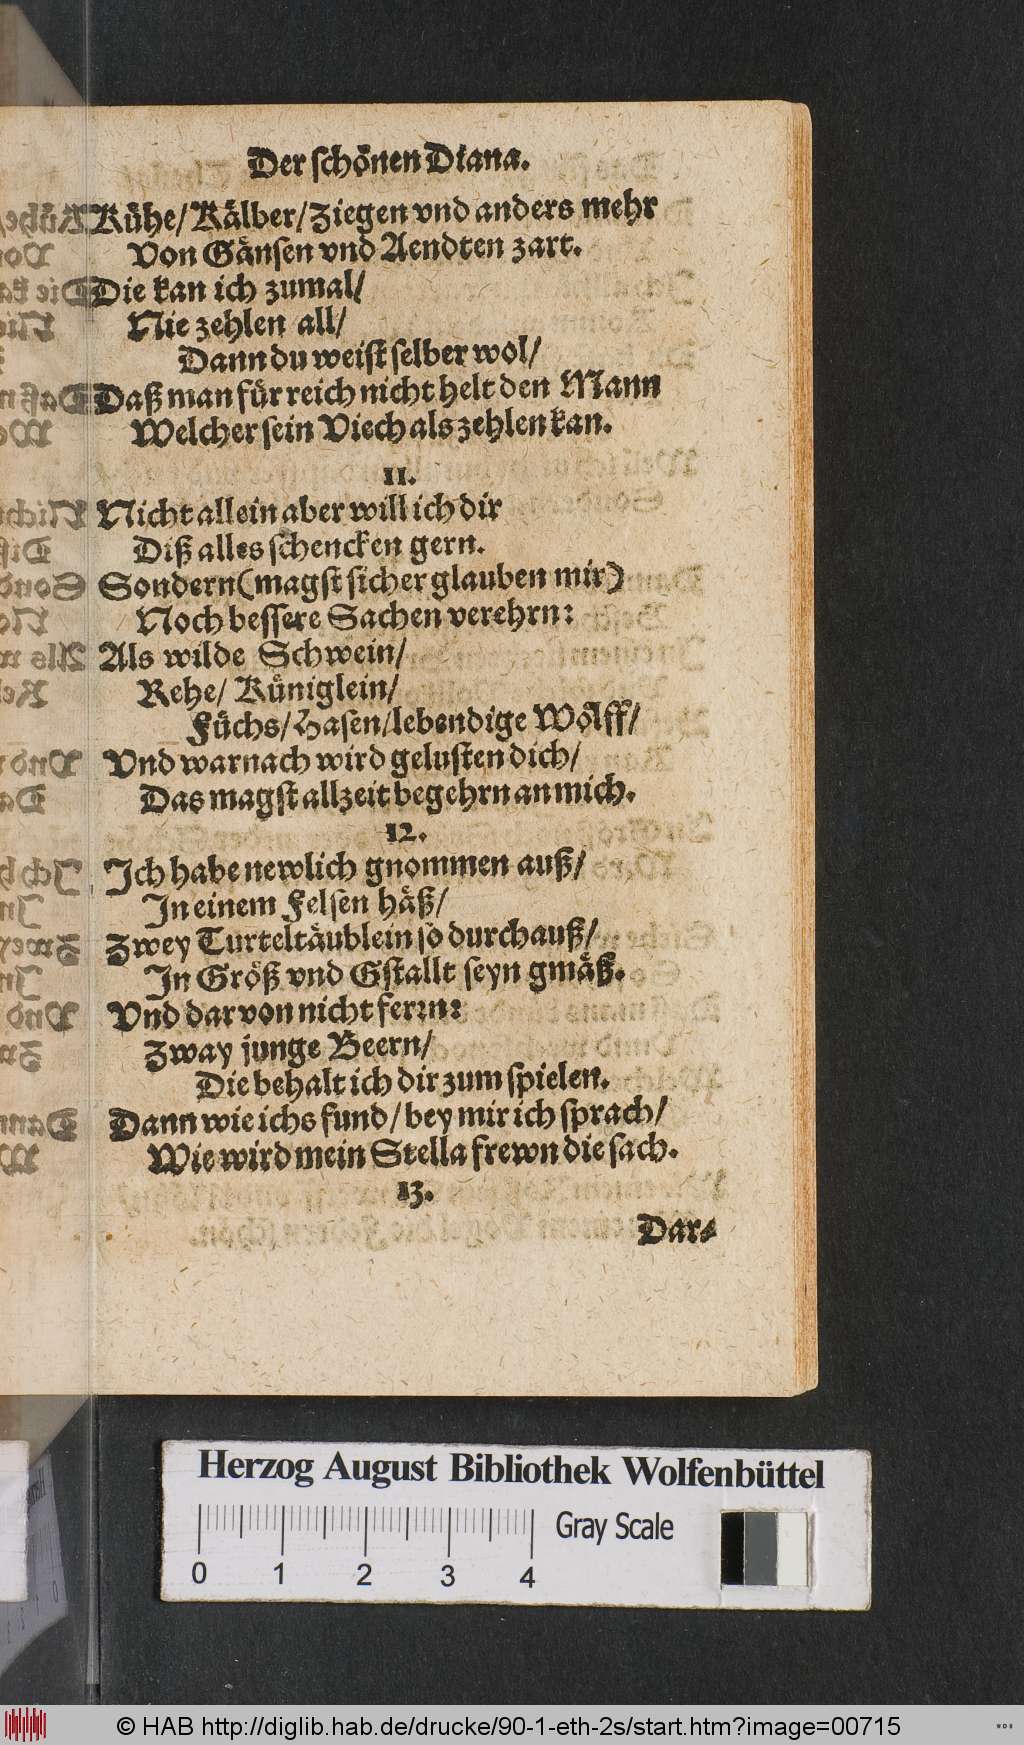 Der schönen Diana.
Kühe/ Kälber/ Ziegen vnd anders mehr
Von Gänsen vnd Aendten zart.
Die kan ich zumal/
Nie zehlen all/
Dann du weist selber wol/
Daß man für reich nicht helt den Mann
Welcher sein Viech als zehlen kan.
11.
Nicht allein aber will ich dir
Diß alles schencken gern.
Sondern (magst sicher glauben mir)
Noch bessere Sachen verehrn:
Als wilde Schwein/
Rehe/ Küniglein/
Füchs/ Hasen/ lebendige Wölff/
Vnd warnach wird gelusten dich/
Das magst allzeit begehrn an mich.
12.
Ich habe newlich gnommen auß/
In einem Felsen häß/
Zwey Turteltäublein so durchauß/
In Größ vnd Gstallt seyn gmäß.
Vnd dar von nicht ferrn:
Zway junge Beern/
Die behalt ich dir zum spielen.
Dann wie ichs fund/ bey mir ich sprach/
Wie wird mein Stella frewn die sach.
13.
Dar-
Herzog August Bibliothek Wolfenbüttel
0 1 2 3 4 Gray Scale
© HAB http://diglib.hab.de/drucke/90-1-eth-2s/start.htm?image=00715